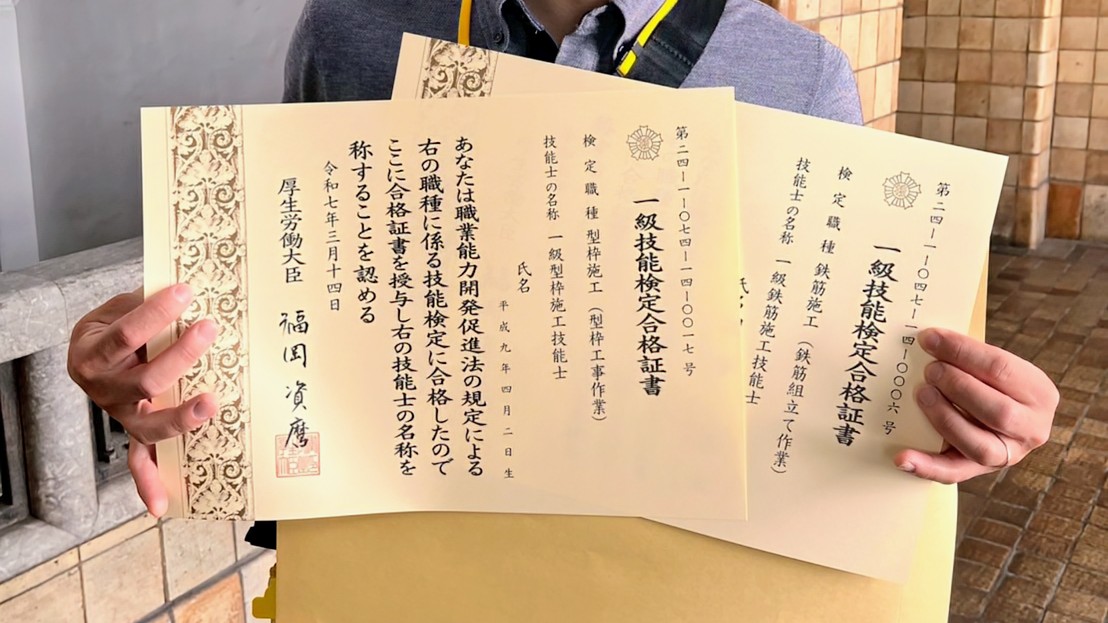 第二四-一-〇七四-一四-〇〇一七号
一級技能検定合格証書
検定職種 型枠施工(型枠工事作業)
技能士の名称 一級型枠施工技能士
氏名
平成九年四月二日生
あなたは職業能力開発促進法の規定による
右の職種に係る技能検定に合格したので
ここに合格証書を授与し右の技能士の名称を
称することを認める
令和七年三月十四日
厚生労働大臣 福岡資麿
第二四-一-〇四七-一四-〇〇〇六号
一級技能検定合格証書
検定職種 鉄筋施工(鉄筋組立て作業)
技能士の名称 一級鉄筋施工技能士